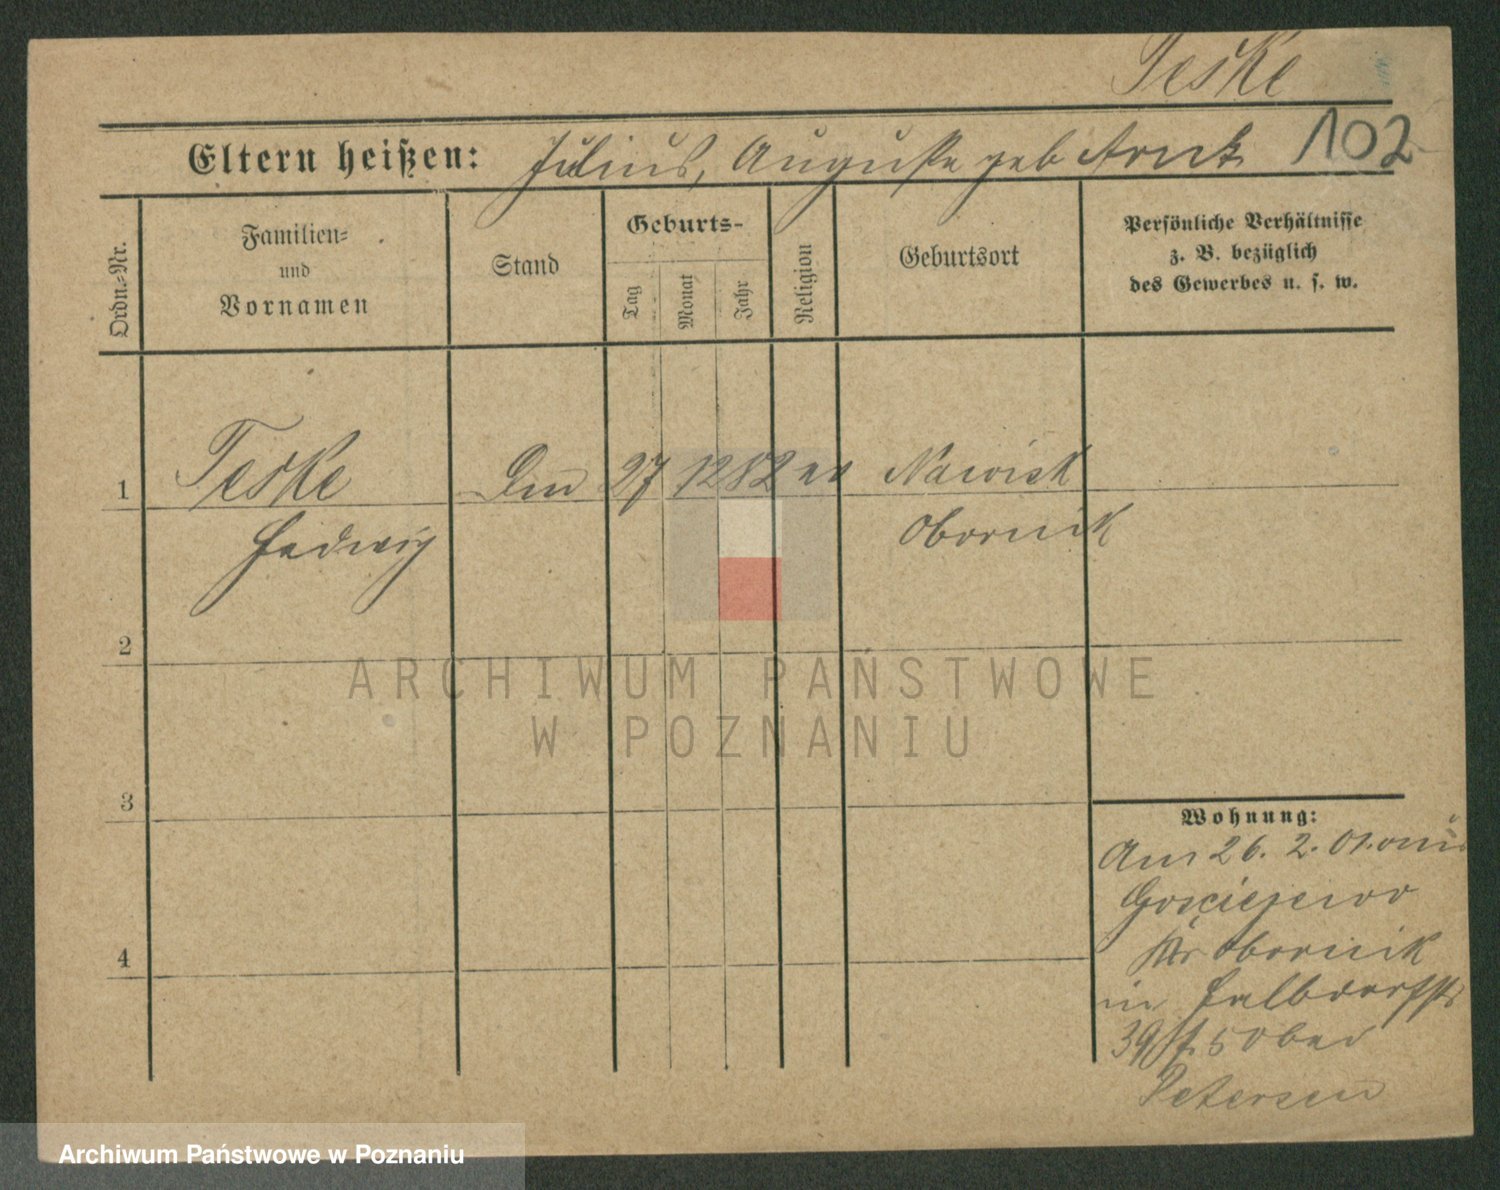 Teske
Eltern heißen: Julius, Auguste geb Arnk 102
Ordn.-Nr.
Familien- und Vornamen
Stand
Geburts-
Tag
Monat
Jahr
Religion
Geburtsort
Persönliche Verhältnisse
z. B. bezüglich
des Gewerbes u. s. w.
1 Teske 27 12 82 Nawisk
Hedwig Obornik
2
ARCHIWUM PAŃSTWOWE
W POZNANIU
3
Wohnung:
Am 26. 2. 01. von
Gosciejewo
4
Krs Obornik
in Halbdorfstr
39 5 Ober
Petersen
Archiwum Państwowe w Poznaniu